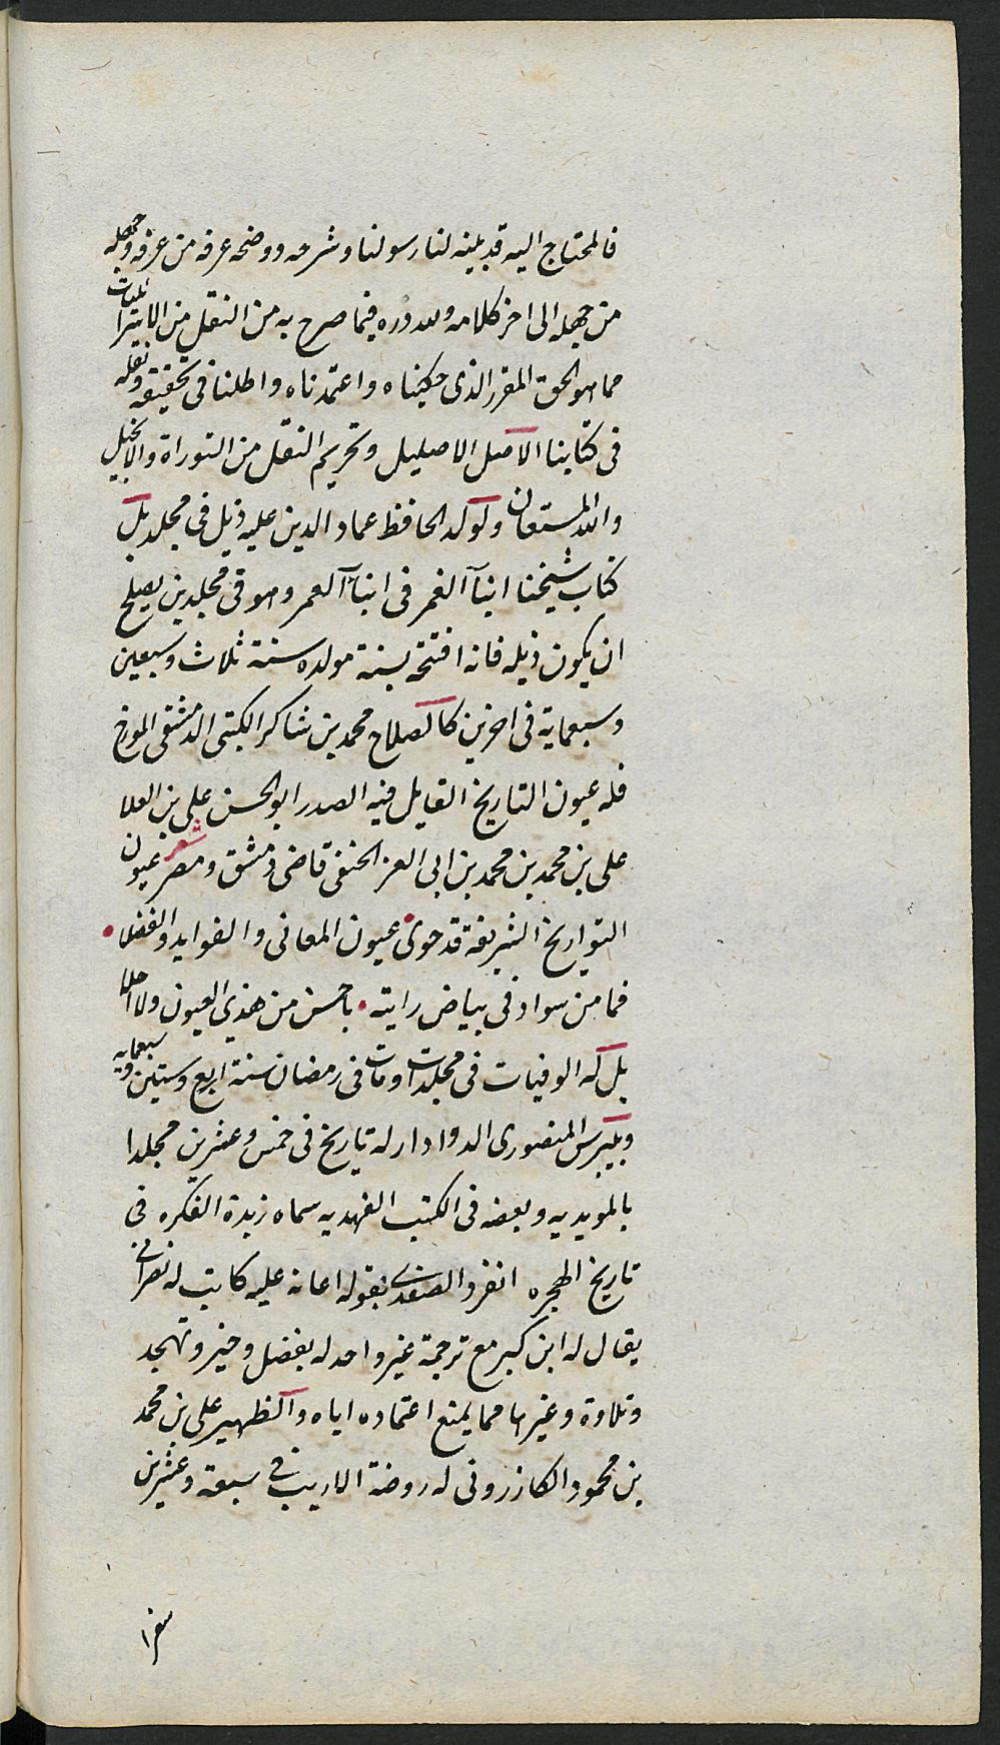 فالمحتاج اليه قد بينه لنا رسولنا وشرحه ووضحه عرفه من عرفه وجهله
من جهله الى اخر كلامه ولله دره فيما صرح به من النقل من الاسرائيليات
مما هو الحق المقرر الذى حكيناه واعتمدناه واطلنا فى تحقيقه ونقله
فى كتابنا الاصل الاصيل وتحريم النقل من التوراة والانجيل
والله المستعان ولولد الحافظ عماد الدين عليه ذيل فى مجلد بل
كتاب شيخنا انبآ الغمر فى ابنآ العمر وهو فى مجلدين يصلح
ان يكون ذيله فانه افتتحه بسنة مولده سنة ثلاث وسبعين
وسبعماية فى اخرين كالصلاح محمد بن شاكر الكتبى الدمشقى المورخ
فله عيون التاريخ القايل فيه الصدر ابو الحسن على بن العلا
على بن محمد بن محمد بن ابى العز الحنفى قاضى دمشق ومصر شعر عيون
التواريخ الشريفة قد حوى عيون المعانى والفوايد والفضلا
فما من سواد فى بياض رايته باحسن من هذى العيون ولا احلا
بل له الوفيات فى مجلدات ومات فى رمضان سنة اربع وستين وسبعمايه
وبيبرس المنصورى الدوادار له تاريخ فى خمس وعشرين مجلدا
بالمويديه وبعضه فى الكتب الفهديه سماه زبدة الفكره فى
تاريخ الهجره انفرد الصفدى بقوله اعانه عليه كاتب له نصرانى
يقال له ابن كبر مع ترجمة غير واحد له بفضل وخير وتهجد
وتلاوة وغيرها مما يمنع اعتماده اياه والظهير على بن محمد
بن محمود الكازرونى له روضة الاريب فى سبعة وعشرين
سفرا